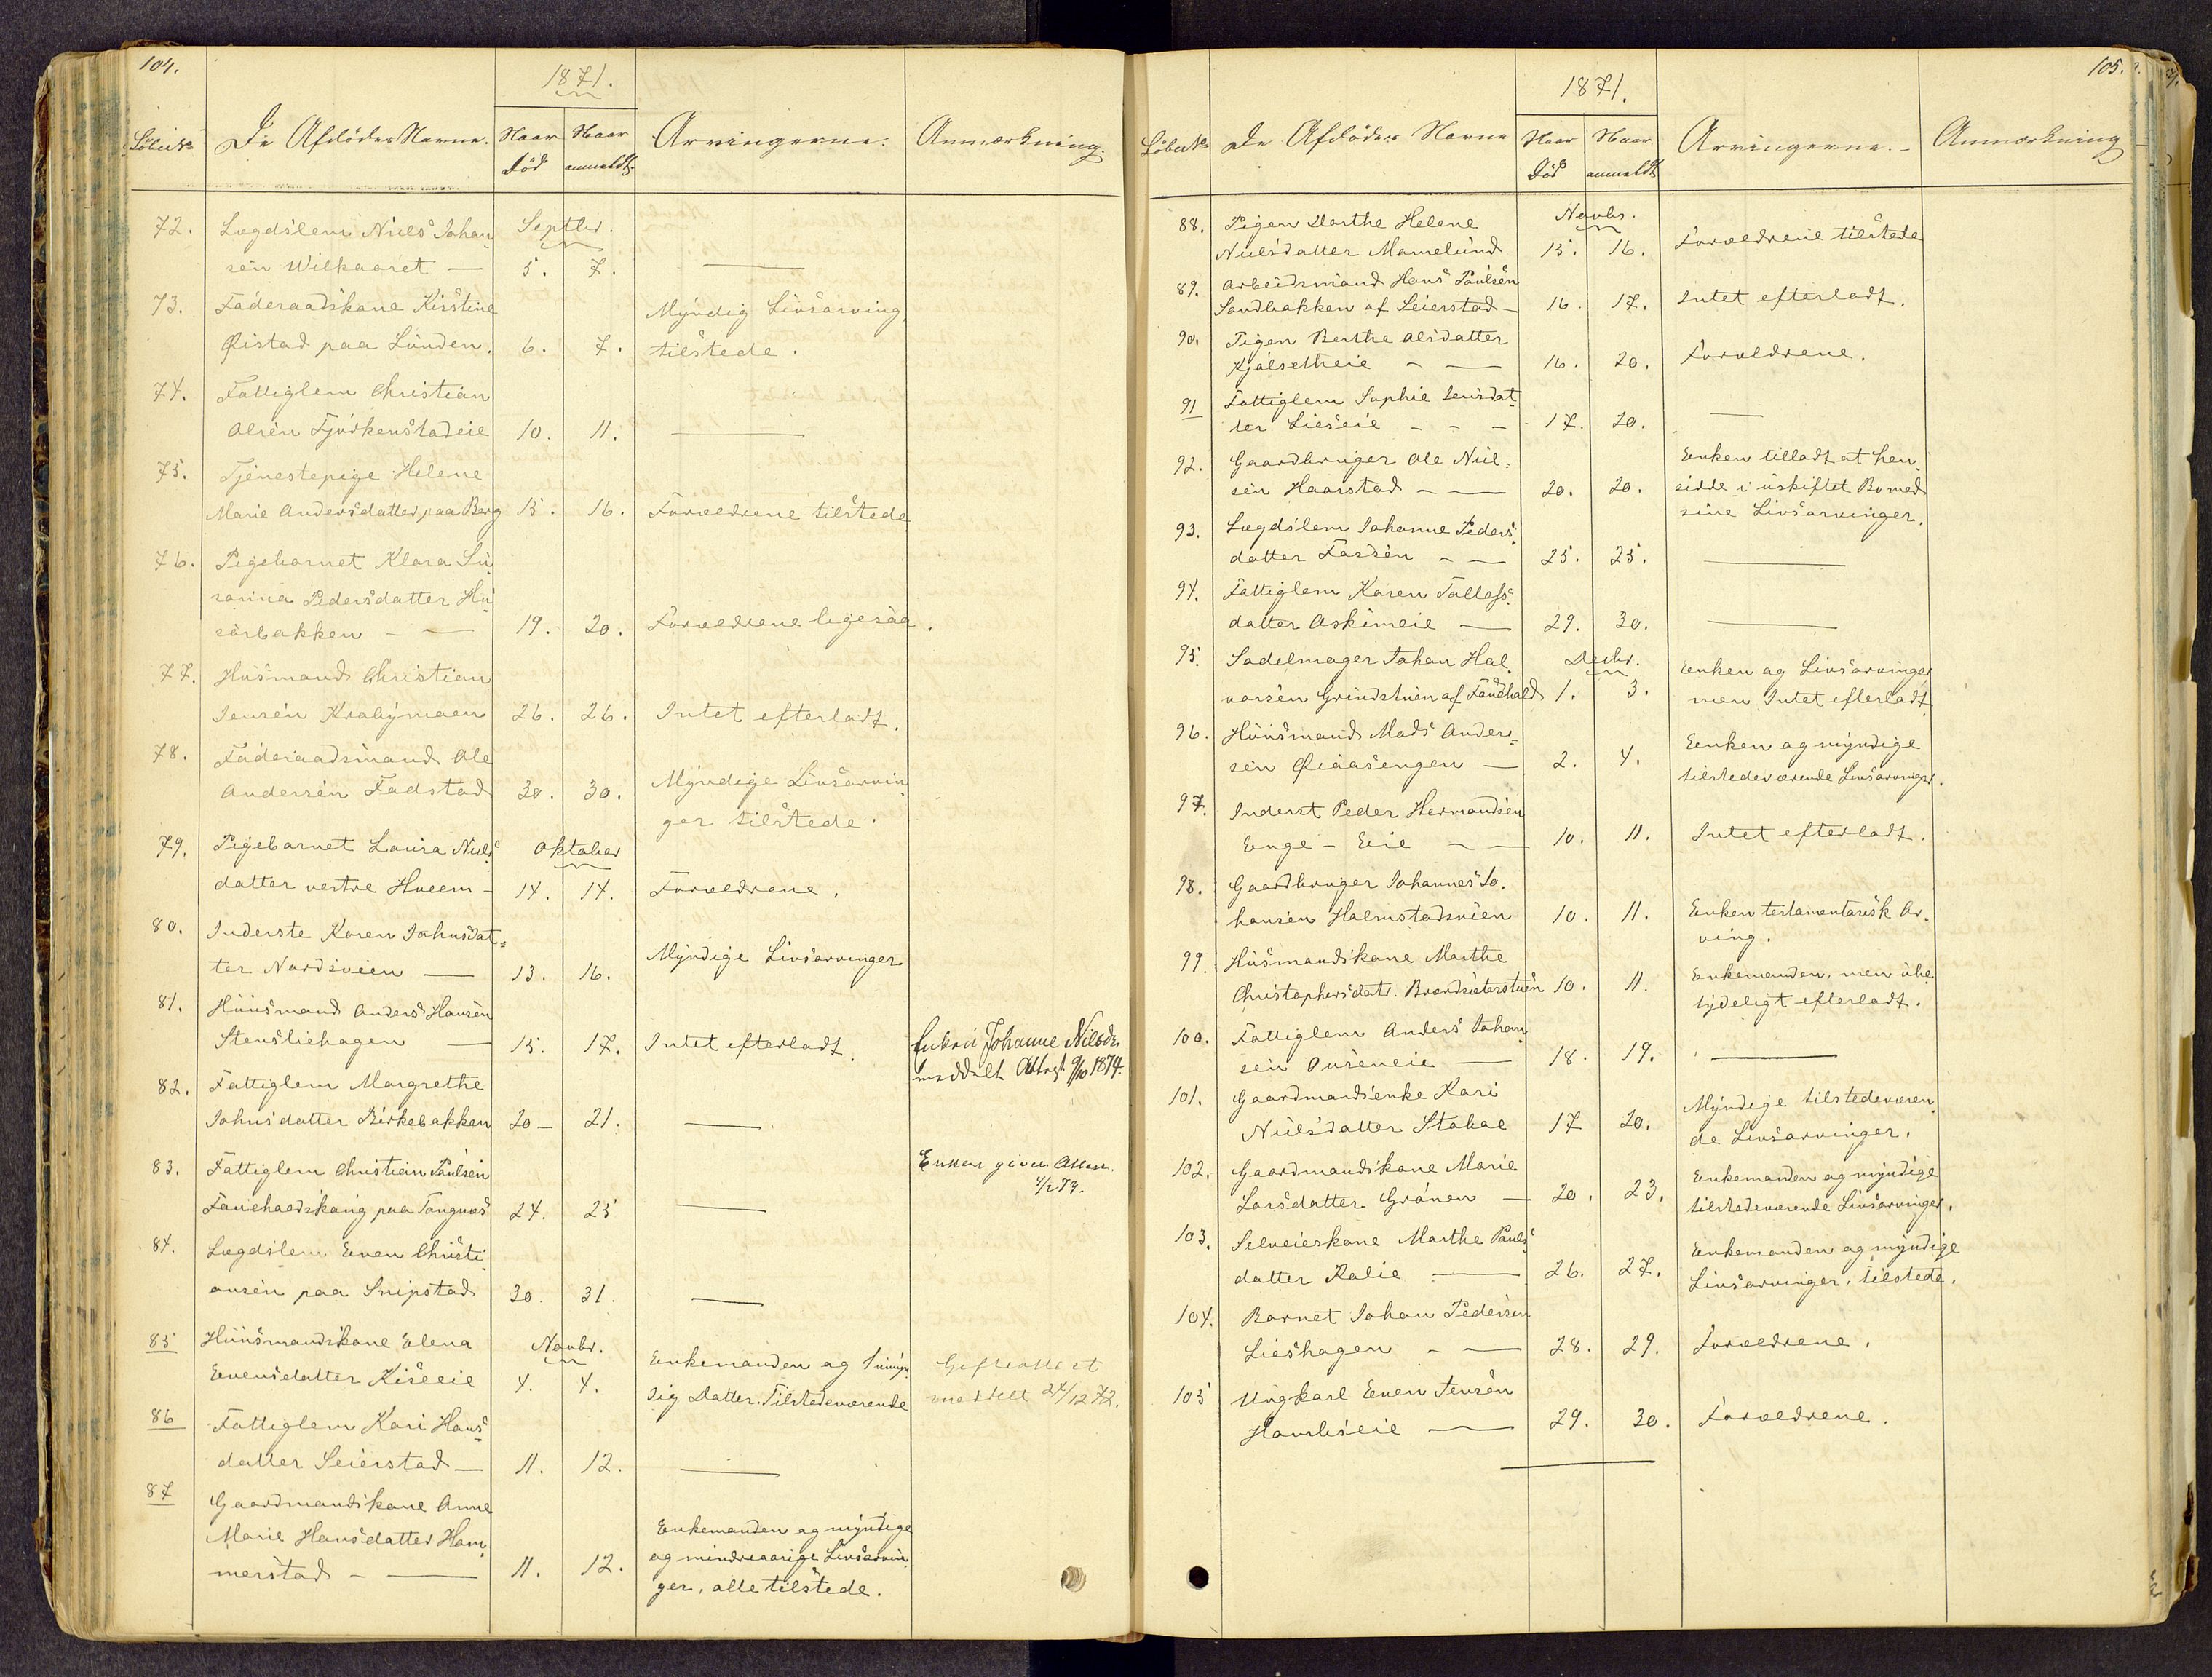 104.
1871.
Löbe No De Afdödes Navne. Naar Död Naar anmeldt. Arvingerne. Anmærkning.
72. Lægdslem Niels Johan Septbr.
sen Wilkaaret — 5. 7. —
73. Føderaadskone Kirstine Myndig Livsarving,
Øistad paa Lunden. 6. 7. tilstede.
74. Fattiglem Christian
Olsen Fjörkenstadeie 10. 11. —
75. Tjenestepige Helene
Marie Andersdatter, paa Berg 15. 16. Forældrene tilstede
76. Pigebarnet Klara Su
sanna Pedersdatter Hu
sørbakken — 19. 20. Forældrene ligesaa.
77. Husmand Christian
Jensen Krabymoen 26. 26. Intet efterladt.
78. Föderaadsmand Ole
Andersen Fadstad 30. 30. Myndige Livsarvin
ger tilstede.
79. Pigebarnet Laura Niels Oktober
datter vestre Hveem - 14. 14. Forældrene.
80. Inderste Karen Johnsdat=
ter Nordsveen — 13. 16. Myndige Livsarvinger
81. Huusmand Anders Hansen
Stensliehagen — 15. 17. Intet efterladt. Enken Johanne Nilsdr
meddelt Attest 9/10 1874.
82. Fattiglem Margrethe
Johnsdatter Birkebakken 20 — 21. —
83. Fattiglem Christian Paulsen Enken given Attest.
4/2 73.
Fauchaldskang paa Tangnæs 24. 25 —
84. Lægdslem Even Christi
ansen paa Snipstad 30. 31. —
85 Huusmandskone Elena Novbr.
Evensdatter Kiseeie 4. 4. Enkemanden og 1 umyn
dig Datter. Tilstedeværende Gifteattest
meddelt 24/12 72.
86 Fattiglem Kari Hans
datter Seierstad — 11. 12. —
87 Gaardmandskone Anne
Marie Hansdatter Ham
merstad — 11. 12. Enkemanden og myndige
og mindreaarige Livsarvin
ger, alle tilstede.
105.
1871.
Löbe No De Afdödes Navne Naar Död Naar anmeldt Arvingerne. Anmærkning
88. Pigen Marthe Helene Novbr.
Nielsdatter Mamelund 15. 16. Forældrene tilstede
89. Arbeidsmand Hans Paulsen
Sandbakken af Seierstad - 16. 17. Intet efterladt.
90. Pigen Berthe Olsdatter
Kjölsetheie — 16. 20. Forældrene.
91 Fattiglem Sophie Jensdat
ter Lieseie - - - 17. 20. —
92. Gaardbruger Ole Niel=
sen Haarstad — 20. 20. Enken tilladt at hen
sidde i uskiftet Bo med
sine Livsarvinger.
93. Lægdslem Johanne Peders
datter Fossen — 25. 25. —
94. Fattiglem Karen Tollefs
datter Askimeie — 29. 30. —
95. Sadelmager Johan Hal Decbr.
vorsen Grindstuen af Fauchald 1. 3. Enken og Livsarvinger
men Intet efterladt
96. Huusmand Mads Anders=
sen Øiaasengen — 2. 4. Enken og myndige
tilstedeværende Livsarvinger.
97. Inderst Peder Hermandsen
Enge - Eie — 10. 11. Intet efterladt.
98. Gaardbruger Johannes Jo.
hansen Halmstadsveen 10. 11. Enken testamentarisk Ar.
ving.
99. Husmandskone Marthe
Christophersdatr. Brandsæterstuen 10. 11. Enkemanden, men ube
tydeligt efterladt.
100. Fattiglem Anders Johan
sen Ouseneie — 18. 19. —
101. Gaardmandsenke Kari
Nielsdatter Stabae 17 20. Myndige tilstedeværen
de Livsarvinger.
102. Gaardmandskone Marie
Larsdatter Grönen — 20. 23. Enkemanden og myndige
tilstedeværende Livsarvinger.
103. Selveierskone Marthe Pauls
datter Kalie — 26. 27. Enkemanden og myndige
Livsarvinger, tilstede.
104. Barnet Johan Pedersen
Lieshagen — 28. 29. Forældrene.
105 Ungkarl Even Jensen
Homliseie — 29. 30. Forældrene.